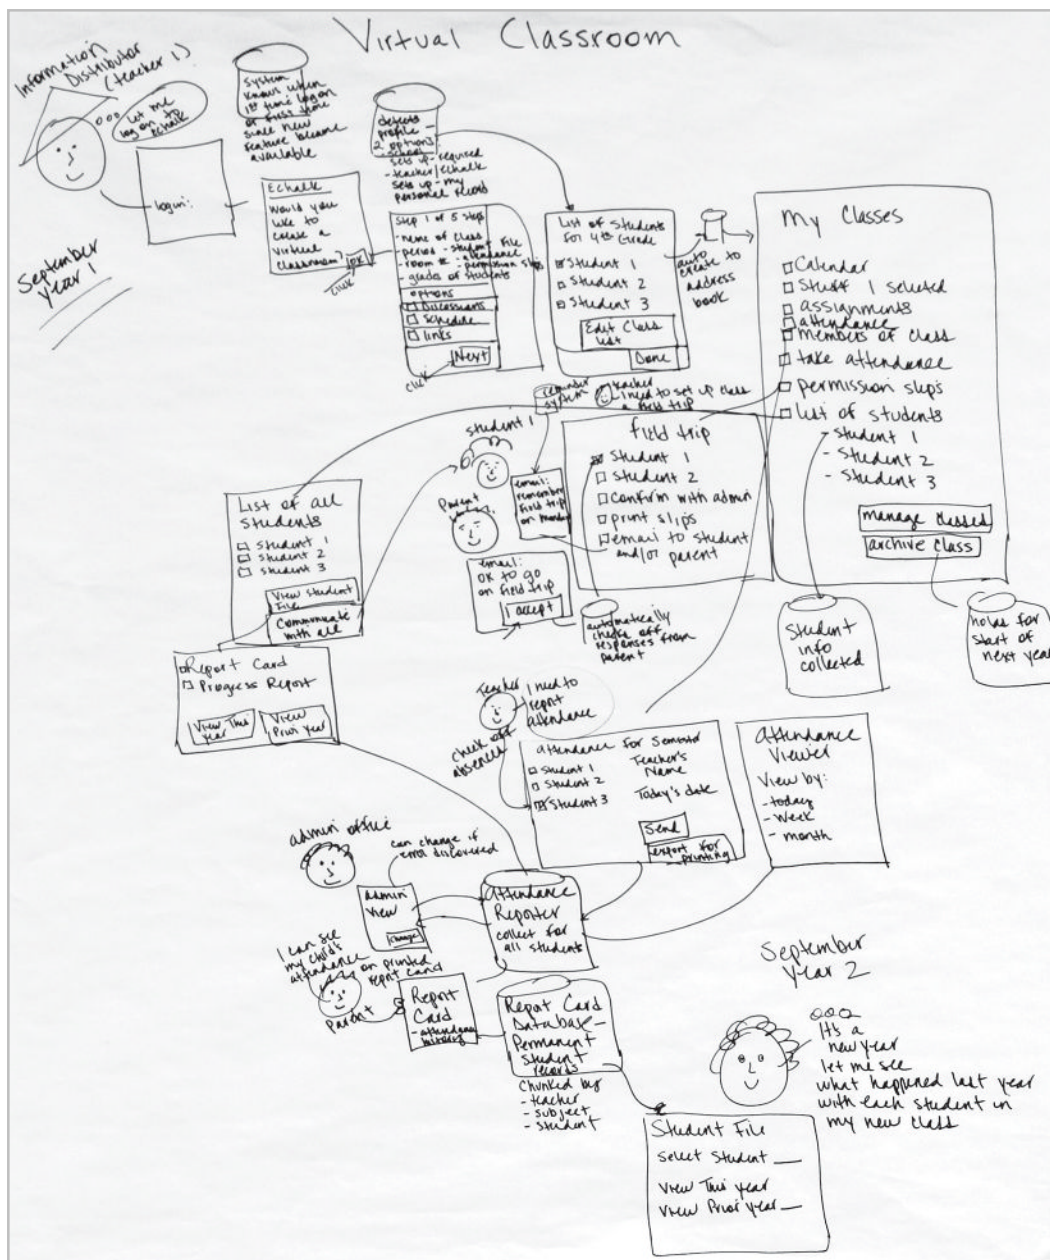 Virtual Classroom
Information
Distributor
(teacher 1)
let me
log on to
echalk
login:
September
year 1
System
knows when
1st time logon
or first time
since new
feature became
available
Echalk
Would you
like to
create a
virtual
classroom?
OK
click
detects
profile
2 options:
- school
sets up - required
- teacher/echalk
sets up - my
personal record
Step 1 of 5 steps
- name of class
- period - student file
- room # - attendance
- permission slips
- grades of students
options
Discussions
Schedule
links
Next
click
List of Students
for 4th Grade
Student 1
Student 2
Student 3
Edit Class
list
Done
auto
create to
address
book
My Classes
Calendar
Stuff I selected
assignments
attendance
members of class
take attendance
permission slips
list of students
- Student 1
- Student 2
- Student 3
manage classes
archive class
reminder
system
teacher
I need to set up class
a field trip
field trip
Student 1
Student 2
confirm with admin
print slips
email to student
and/or parent
student 1
Parent
email:
remember
field trip
on monday
email:
OK to go
on field trip
I accept
automatically
checks off
responses from
parent
List of all
Students
Student 1
Student 2
Student 3
View Student
File
Communicate
with all
Report Card
Progress Report
View This
year
View
Prior year
Student
info
collected
holds for
start of
next year
Teacher
I need to
report
attendance
check off
absences
attendance for Semester
Student 1
Student 2
Student 3
Teacher's
Name
Today's date
Send
export for
printing
Attendance
Viewer
View by:
- today
- week
- month
admin office
can change if
error discovered
admin
view
change
attendance
Reporter
collect for
all students
I can see
my child's
attendance
on printed
report card
Parent
Report
Card
- attendance
history
Report Card
Database -
Permanent
student
records
Chunked by
- teacher
- subject
- student
September
year 2
It's a
new year
let me see
what happened last year
with each student in
my new class
Student File
Select Student __
View This year
View Prior year __